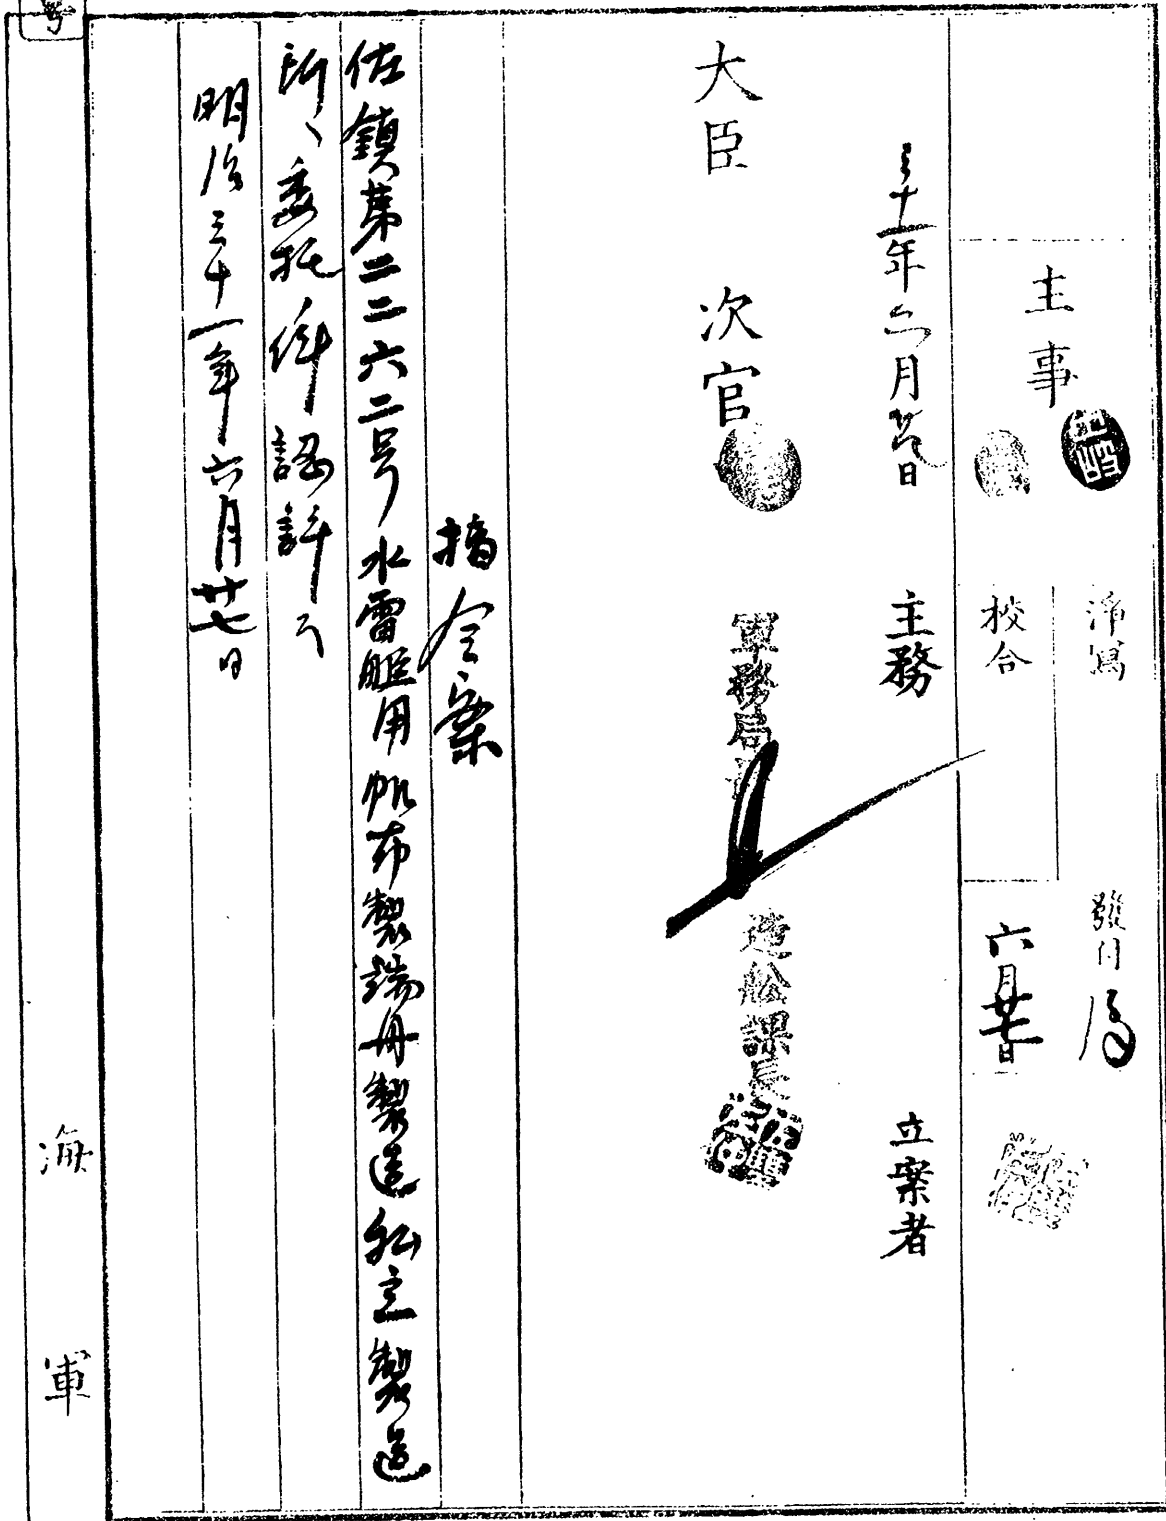 主事
淨寫
校合
發付 済
六月廿七日
三十一年六月 日
主務
立案者
大臣
次官
軍務局長
造船課長
指令案
佐鎮第二二六二号水雷艇用帆布製端舟製造私立製造
所ヘ委托ノ件認許ス
明治三十一年六月廿七日
海軍